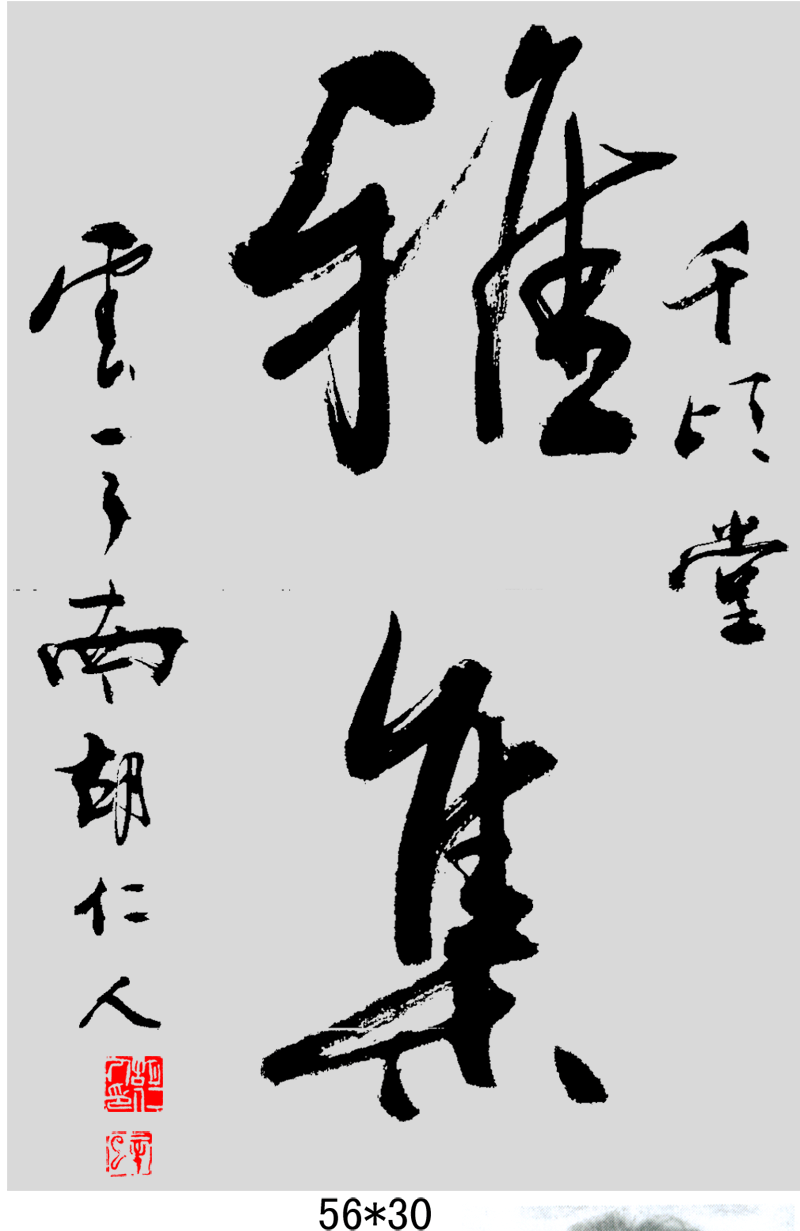 千頃堂
雅集
雲南胡仁人
56*30